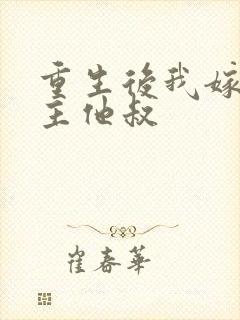 重生後我嫁
主他叔
崔春華